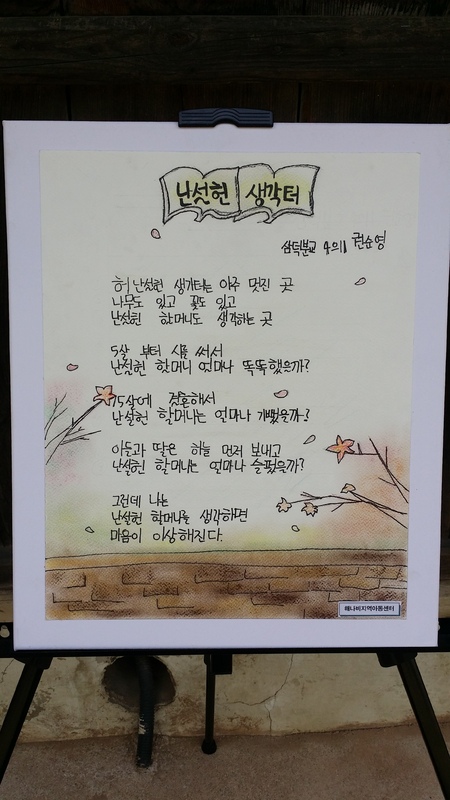 난설헌 생각터
삼덕분교 4의1 권순영
허난설헌 생각터는 아주 멋진 곳
나무도 있고 꽃도 있고
난설헌 할머니도 생각하는 곳
5살 부터 시를 써서
난설헌 할머니 얼마나 똑똑했을까?
15살에 결혼해서
난설헌 할머니는 얼마나 기뻤을까?
아들과 딸은 하늘 먼저 보내고
난설헌 할머니는 얼마나 슬펐을까?
그런데 나는
난설헌 할머니를 생각하면
마음이 이상해진다.
해나비지역아동센터